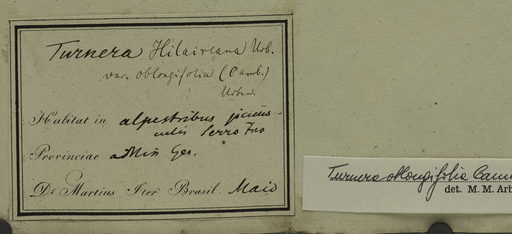 Turnera Hilaireana Urb.
var. oblongifolia (Camb.)
Urban
Habitat in alpestribus
Serro Frio
Provinciae Min Ger.
Dr. Martius Iter Brasil. Maio
Turnera oblongifolia Camb
det. M. M. Arb